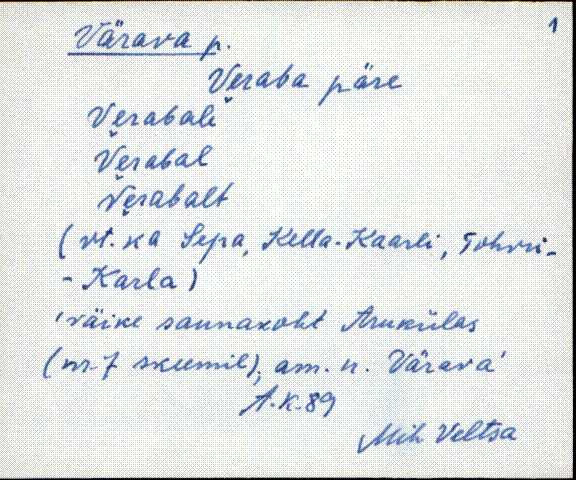 1
Värava p.
Ve̬raba päre
Ve̬rabalє
Ve̬rabal
Ve̬rabalt
(vt. ka Sepa, Kella-Kaarli, Tohvri-
-Karla)
'väike saunakoht Arukülas
(nr. 7 skeemil); am. n. Värava'
A.K. 89
Mih Veltsa